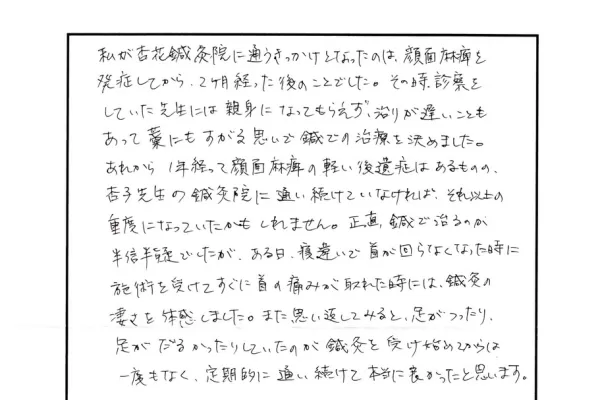 私が杏花鍼灸院に通うきっかけとなったのは、顔面麻痺を
発症してから、2ヶ月経った後のことでした。その時、診察を
していた先生には親身になってもらえず、治りが遅いことも
あって藁にもすがる思いで鍼での治療を決めました。
あれから1年経って顔面麻痺の軽い後遺症はあるものの、
杏子先生の鍼灸院に通い続けていなければ、それ以上の
重度になっていたかもしれません。正直、鍼で治るのか
半信半疑でしたが、ある日、寝違いで首が回らなくなった時に
施術を受けてすぐに首の痛みが取れた時には、鍼灸の
凄さを体感しました。また思い返してみると、足がつったり、
足がだるかったりしていたのが鍼灸を受け始めてからは
一度もなく、定期的に通い続けて本当に良かったと思います。